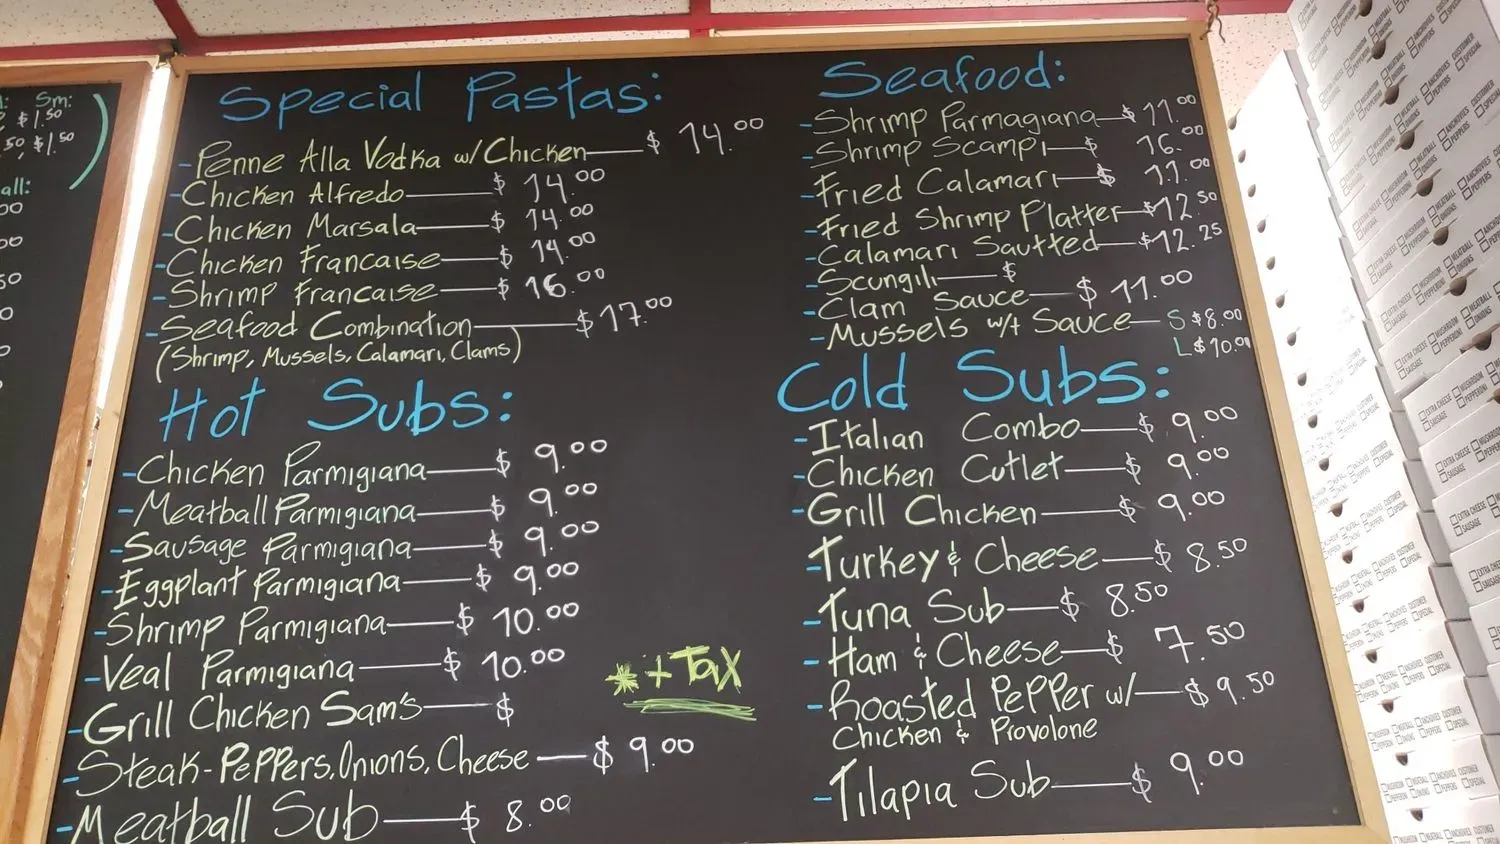 Sm:
$1.50
.50, $1.50
all:
Special Pastas:
-Penne Alla Vodka w/Chicken—$ 14.00
-Chicken Alfredo—$ 14.00
-Chicken Marsala—$ 14.00
-Chicken Francaise—$ 14.00
-Shrimp Francaise—$ 16.00
-Seafood Combination—$17.00
(Shrimp, Mussels, Calamari, Clams)
Hot Subs:
-Chicken Parmigiana—$ 9.00
-Meatball Parmigiana—$ 9.00
-Sausage Parmigiana—$ 9.00
-Eggplant Parmigiana—$ 9.00
-Shrimp Parmigiana—$ 10.00
-Veal Parmigiana—$ 10.00
-Grill Chicken Sam's—$
-Steak-Peppers, Onions, Cheese—$ 9.00
-Meatball Sub—$ 8.00
*+Tax
Seafood:
-Shrimp Parmagiana—$11.00
-Shrimp Scampi—$ 16.00
-Fried Calamari—$ 11.00
-Fried Shrimp Platter—$12.50
-Calamari Sautted—$12.25
-Scungili—$
-Clam Sauce—$ 11.00
-Mussels w/t Sauce—S $8.00
L $10.00
Cold Subs:
-Italian Combo—$ 9.00
-Chicken Cutlet—$ 9.00
-Grill Chicken—$ 9.00
-Turkey & Cheese—$ 8.50
-Tuna Sub—$ 8.50
-Ham & Cheese—$ 7.50
-Roasted Pepper w/—$ 9.50
Chicken & Provolone
-Tilapia Sub—$ 9.00
EXTRA CHEESE MUSHROOM MEATBALL ANCHOVIES CUSTOMER
SAUSAGE PEPPERONI ONIONS PEPPERS SPECIAL